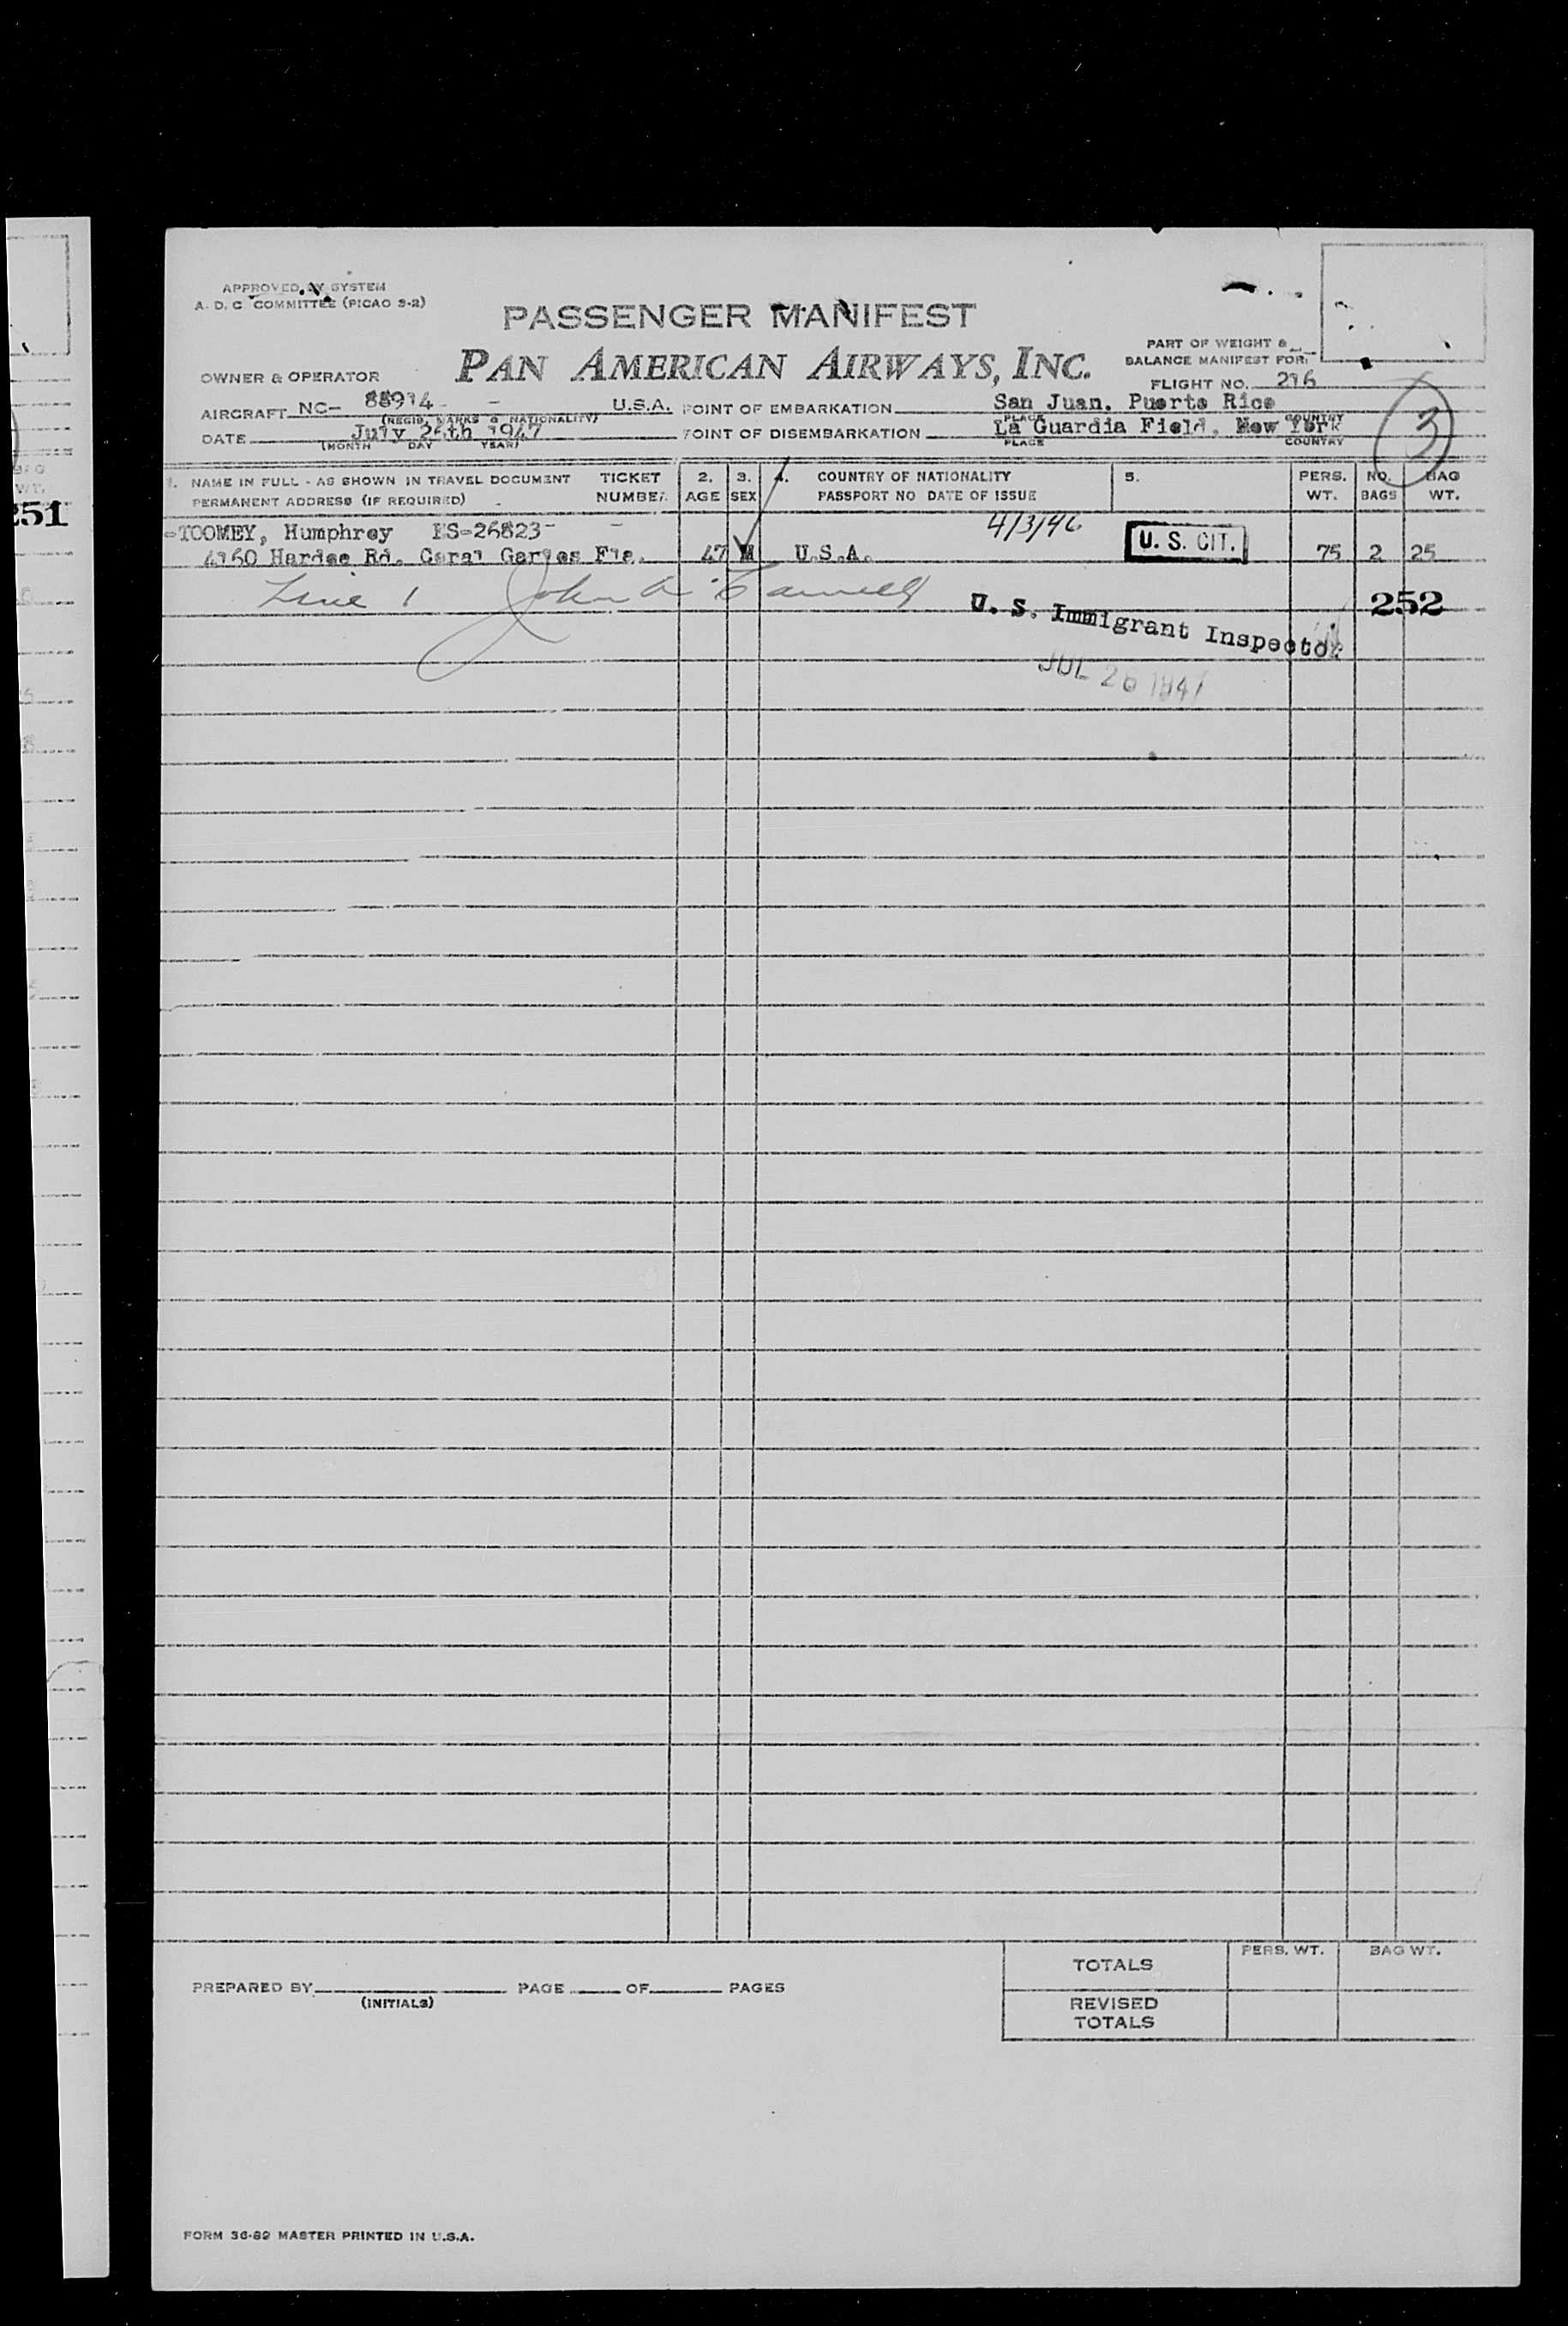 APPROVED BY SYSTEM
A. D. C. COMMITTEE (PICAO 9-2)
PASSENGER MANIFEST
PAN AMERICAN AIRWAYS, INC.
PART OF WEIGHT &
BALANCE MANIFEST FOR:
FLIGHT NO. 216
OWNER & OPERATOR
AIRCRAFT NC- 88914 - - U.S.A.
(REGIS. MARKS & NATIONALITY)
DATE July 26th 1947
(MONTH DAY YEAR)
POINT OF EMBARKATION San Juan, Puerto Rico
PLACE COUNTRY
POINT OF DISEMBARKATION La Guardia Field, New York
PLACE COUNTRY
3
1. NAME IN FULL - AS SHOWN IN TRAVEL DOCUMENT TICKET 2. 3. 4. COUNTRY OF NATIONALITY 5. PERS. NO. BAG
PERMANENT ADDRESS (IF REQUIRED) NUMBER AGE SEX PASSPORT NO DATE OF ISSUE WT. BAGS WT.
BAG
WT.
251
-TOOMEY, Humphrey -26823- - 4/3/46
4160 Hardee Rd. Coral Gables Fla. 47 M U.S.A. U. S. CIT. 75 2 25
Line 1 John
U. S. Immigrant Inspector
252
JUL 26 1947
TOTALS PERS. WT. BAG WT.
PREPARED BY PAGE OF PAGES
(INITIALS)
REVISED
TOTALS
FORM 36-89 MASTER PRINTED IN U.S.A.